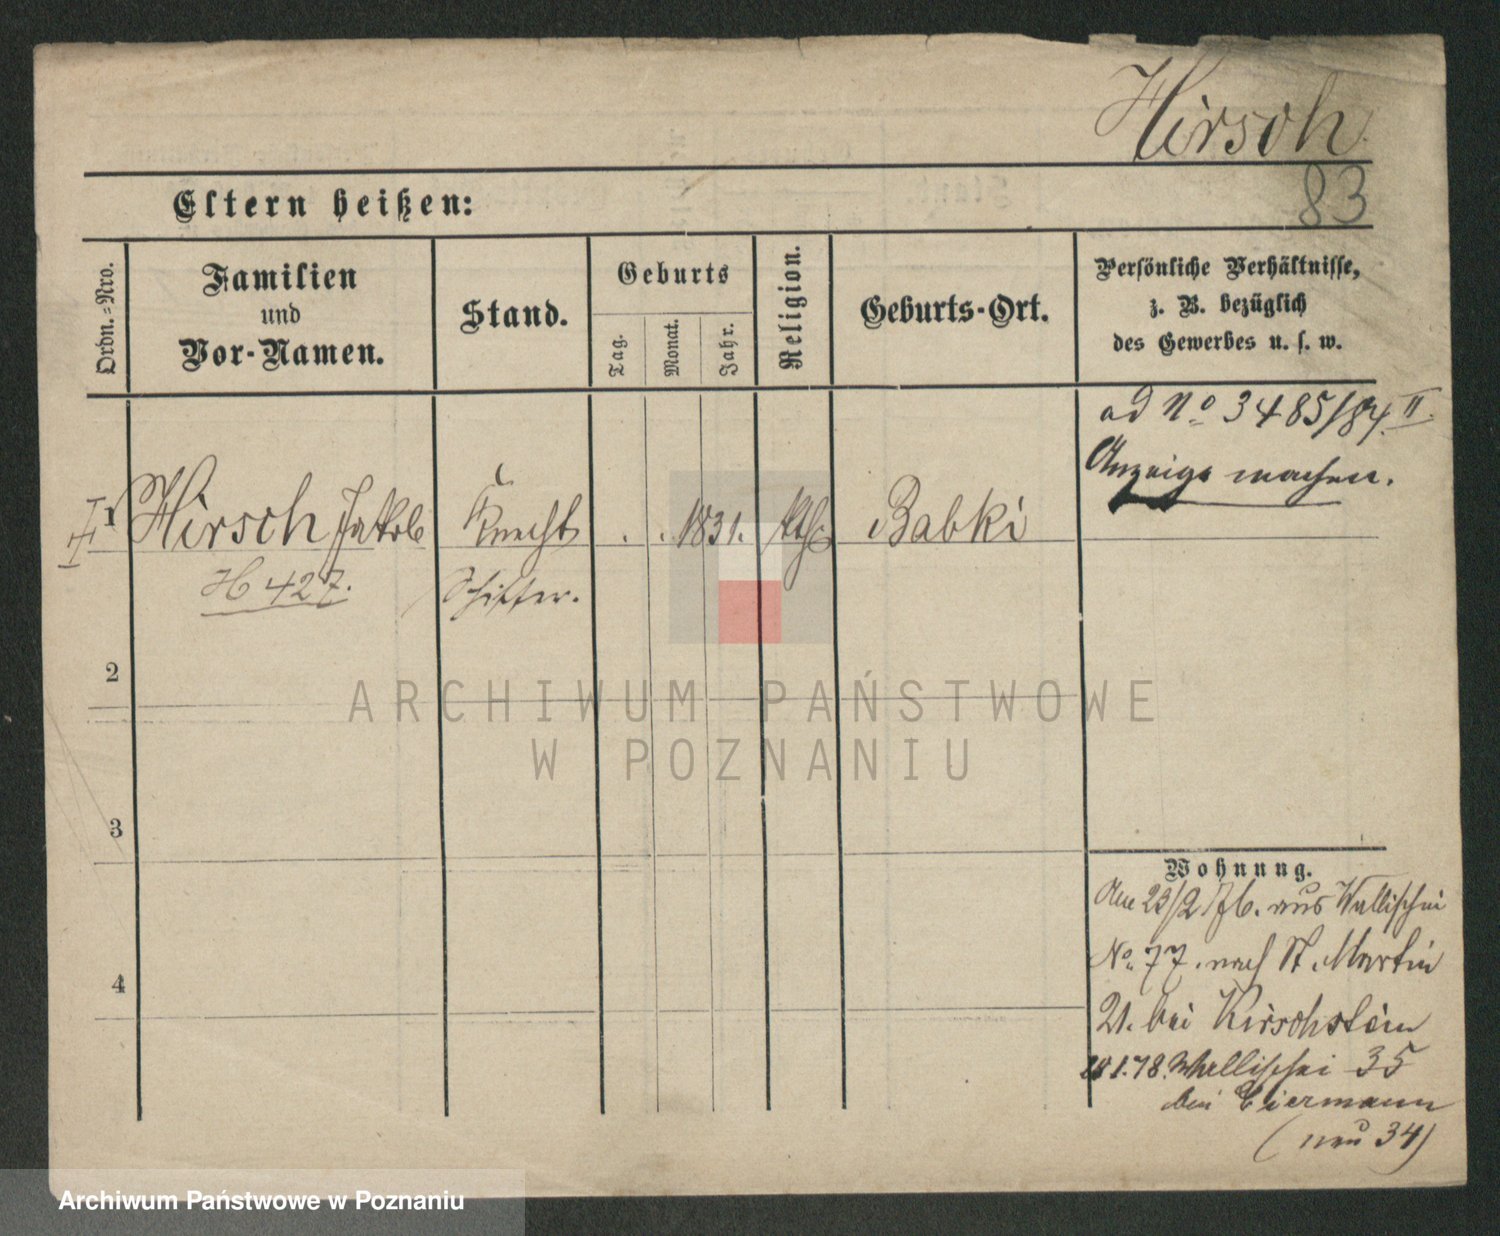 Hirsch
83
Eltern heißen:
Ordn.-Nro.
Familien
und
Vor-Namen.
Stand.
Geburts
Tag.
Monat.
Jahr.
Religion.
Geburts-Ort.
Persönliche Verhältnisse,
z. B. bezüglich
des Gewerbes u. s. w.
ad No 3485/84. II.
Anzeige machen.
1
Hirsch Jakob
Knecht
. . 1831.
kth.
Babki
H 427.
Schiffer.
2
3
4
Wohnung.
Am 23/2 76. aus Wallischei
No. 77. nach St. Martin
21. bei Kirschstein
1.78. Wallischei 35
bei Eiermann
(neu 34)
ARCHIWUM PAŃSTWOWE
W POZNANIU
Archiwum Państwowe w Poznaniu